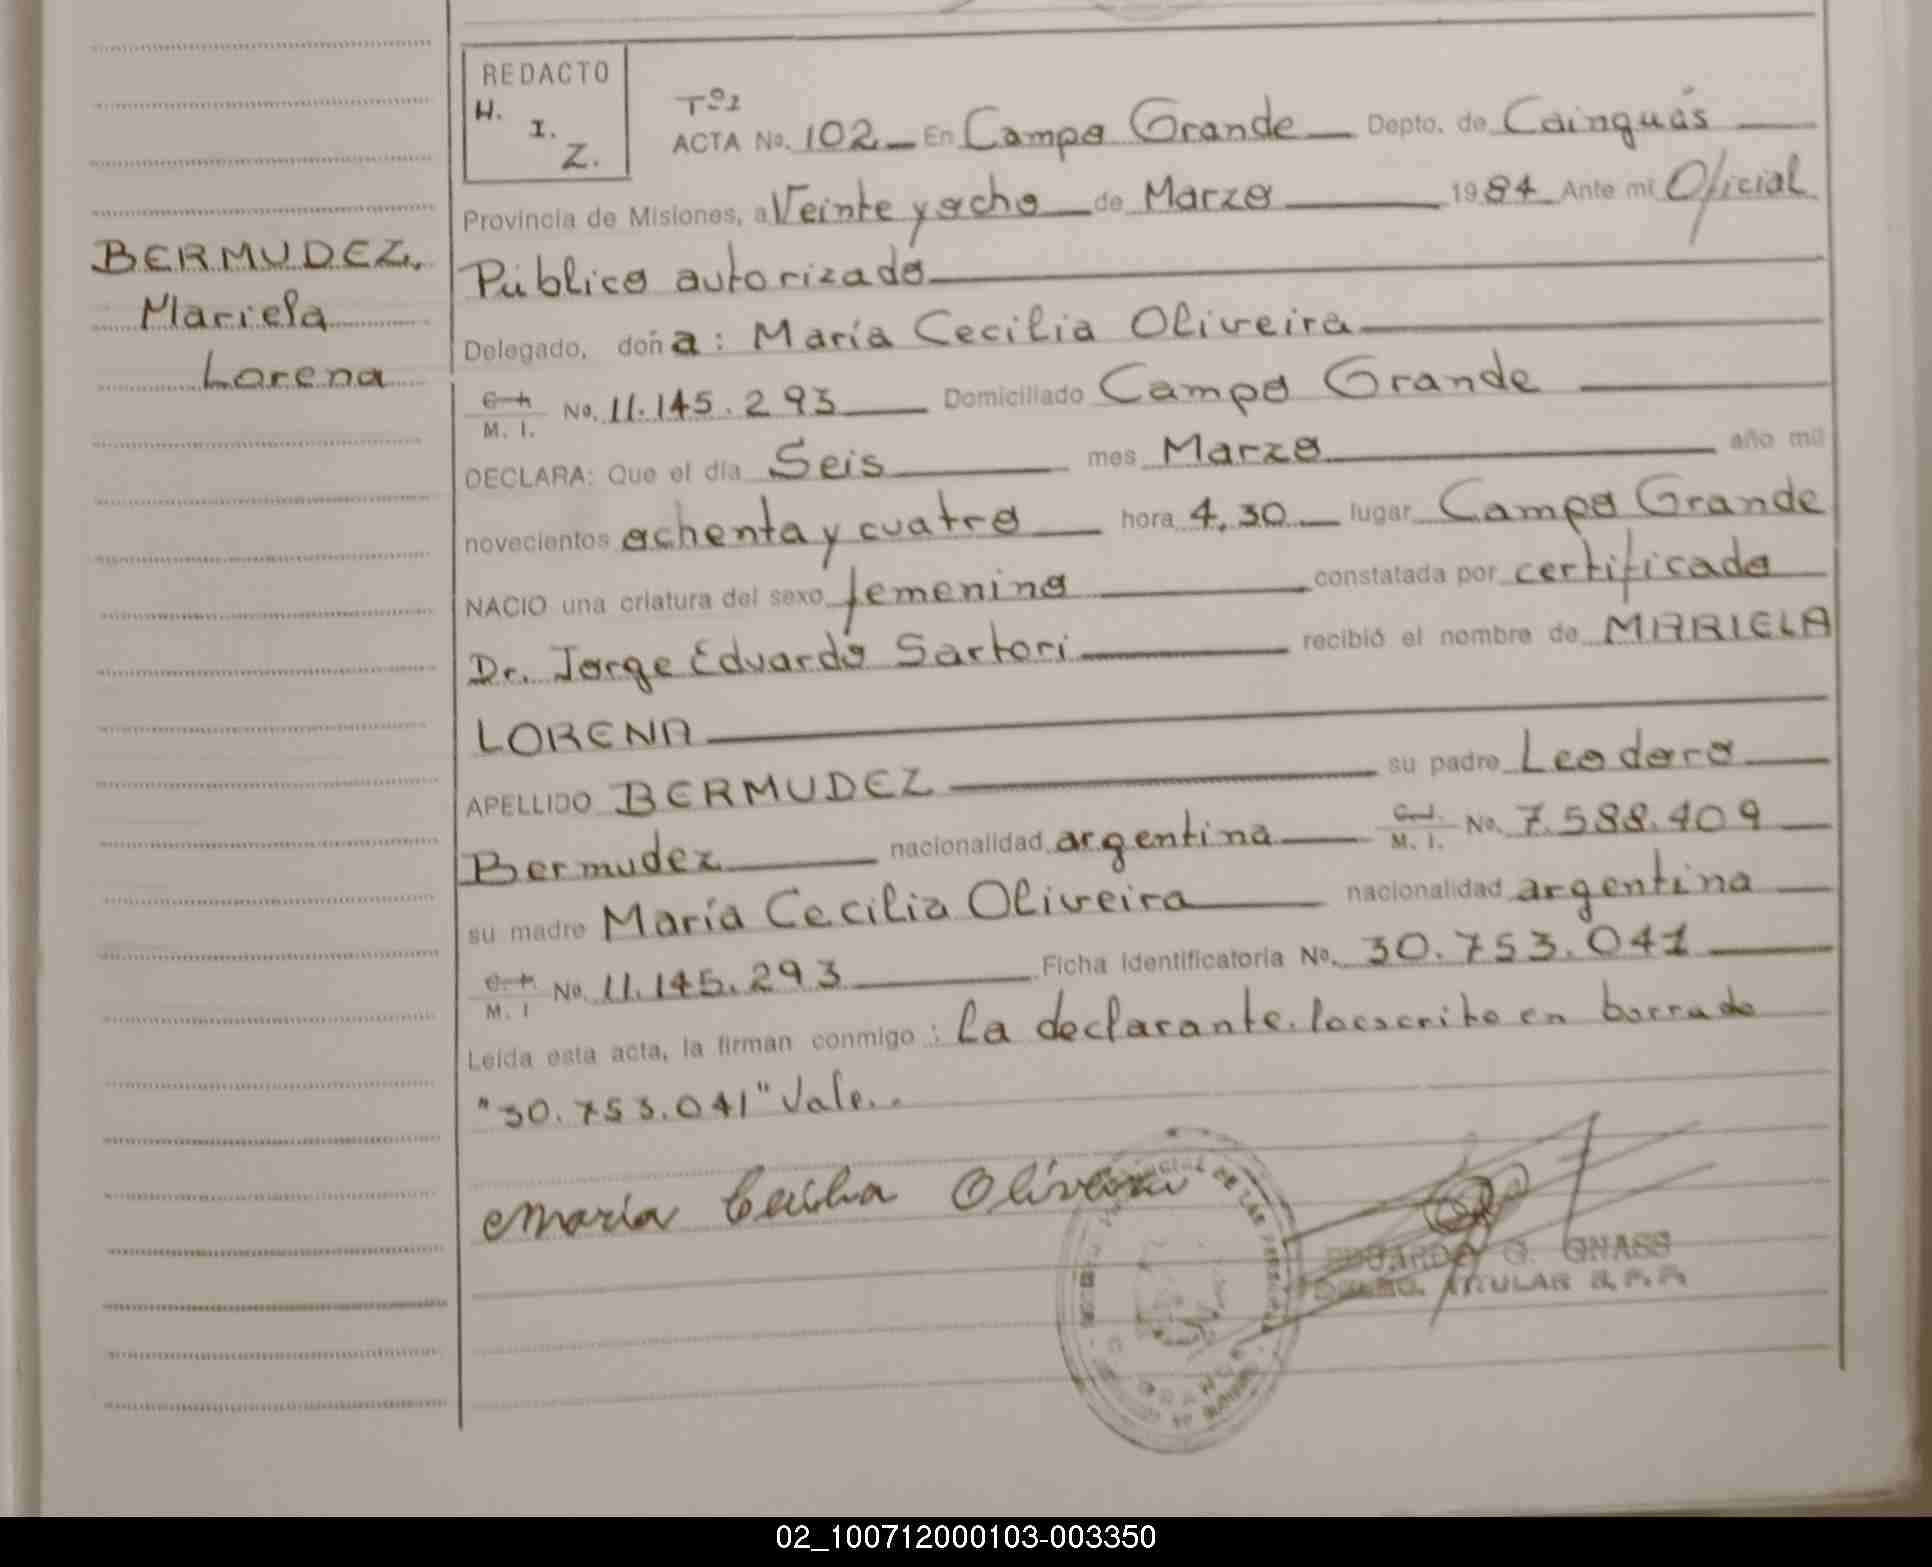 REDACTO
H.
I.
Z.
Tº1
ACTA No. 102 En Campo Grande Depto. de Cainguás
Provincia de Misiones, a Veinte y ocho de Marzo 1984 Ante mi Oficial
Público autorizado
Delegado, doña: María Cecilia Oliveira
M. I. No. 11.145.293 Domiciliado Campo Grande
DECLARA: Que el día Seis mes Marzo año mil
novecientos ochenta y cuatro hora 4,30 lugar Campo Grande
NACIO una criatura del sexo femenino constatada por certificado
Dr. Jorge Eduardo Sartori recibió el nombre de MARIELA
LORENA
APELLIDO BERMUDEZ su padre Leodoro
Bermudez nacionalidad argentina M. I. No. 7.588.409
su madre María Cecilia Oliveira nacionalidad argentina
M. I No. 11.145.293 Ficha Identificatoria No. 30.753.041
Leída esta acta, la firman conmigo: la declarante. en borrado
"30.753.041" Vale..
María Cecilia Oliveira
EDUARDO G. GNASS
TITULAR
BERMUDEZ,
Mariela
Lorena
02_100712000103-003350